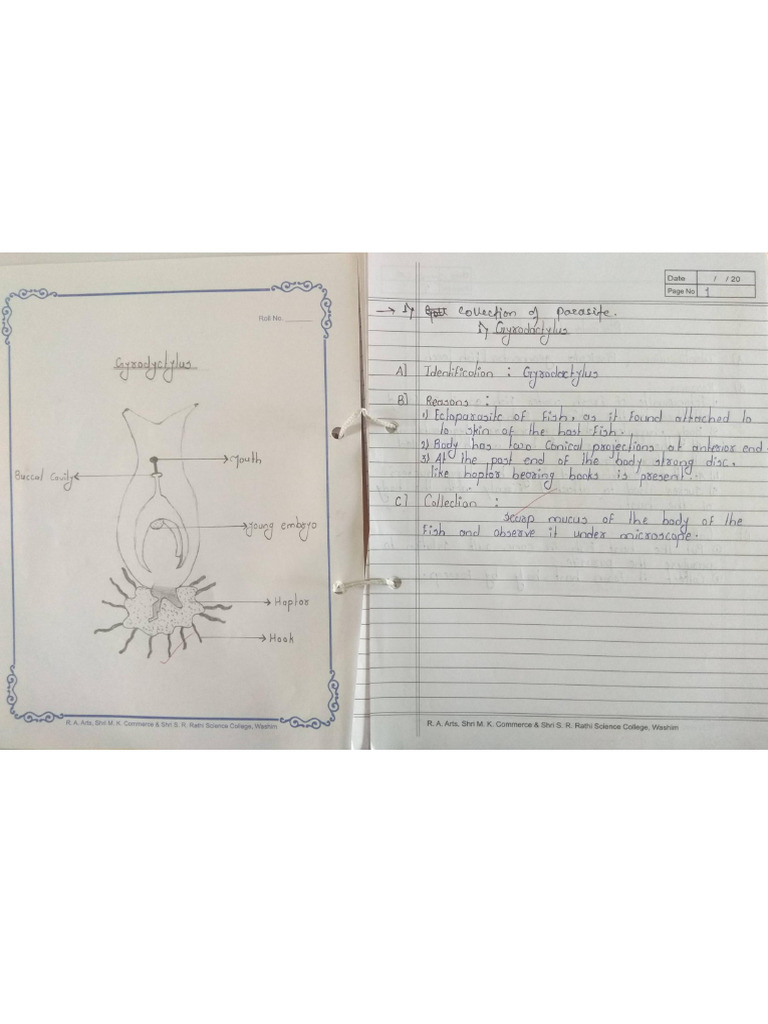 Roll No.
Gyrodyctylus
Mouth
Buccal Cavity
Young embryo
Haptor
Hook
R. A. Arts, Shri M. K. Commerce & Shri S. R. Rathi Science College, Washim
Date / / 20
Page No 1
→ 1) Collection of Parasite.
1) Gyrodactylus
A] Identification : Gyrodactylus
B] Reasons :
1) Ectoparasite of Fish, as it found attached to
to skin of the host Fish.
2) Body has two Conical projections at anterior end.
3) At the post end of the body strong disc.
like haptor bearing hooks is present.
C] Collection :
scarp mucus of the body of the
Fish and observe it under microscope.
R. A. Arts, Shri M. K. Commerce & Shri S. R. Rathi Science College, Washim